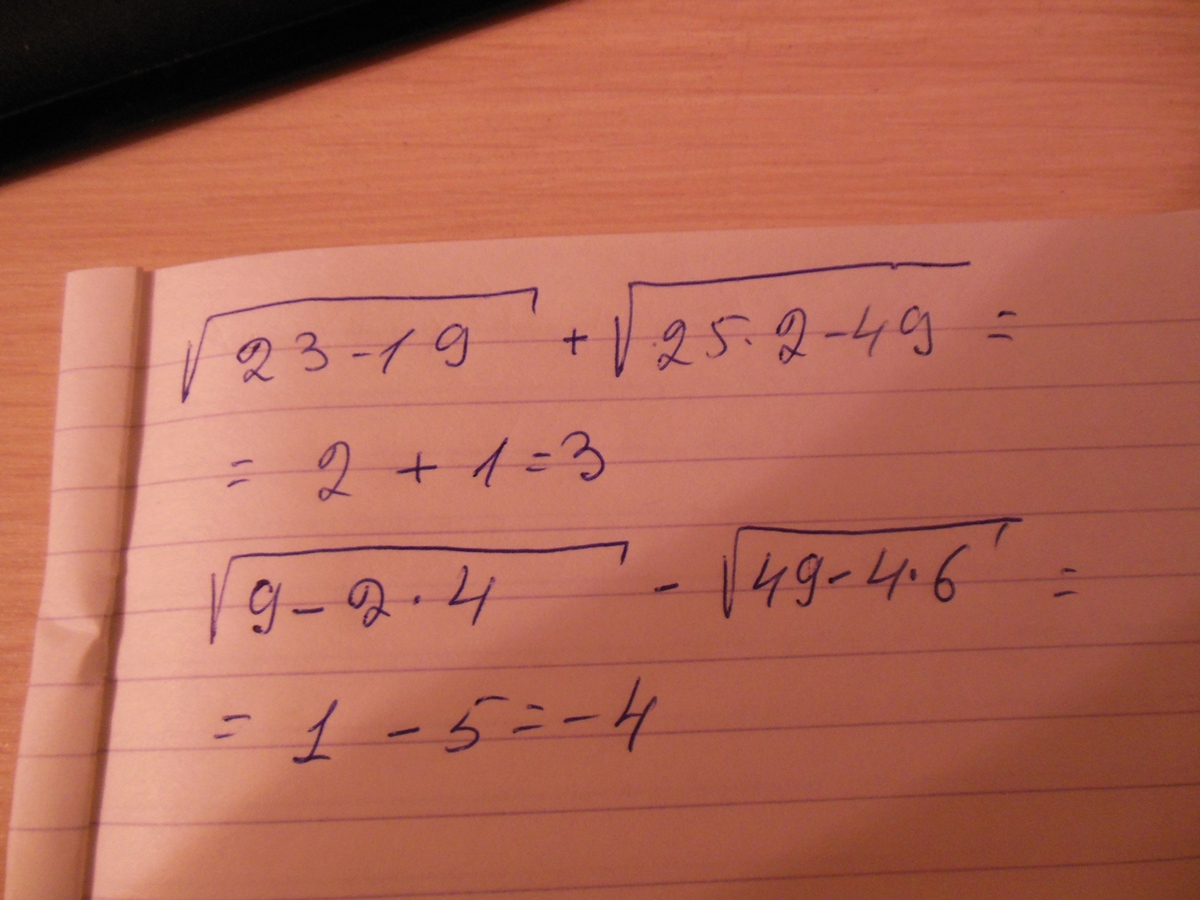 √23-19 + √25·2-49 =
= 2 + 1 = 3
√9-2·4 - √49-4·6 =
= 1 - 5 = -4